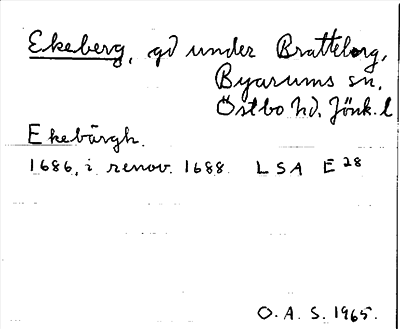 Ekeberg, gd under Bratteborg,
Byarums sn.
Östbo hd. Jönk. l
Ekebärgh.
1686, i renov. 1688 LSA E 28
O. A. S. 1965.